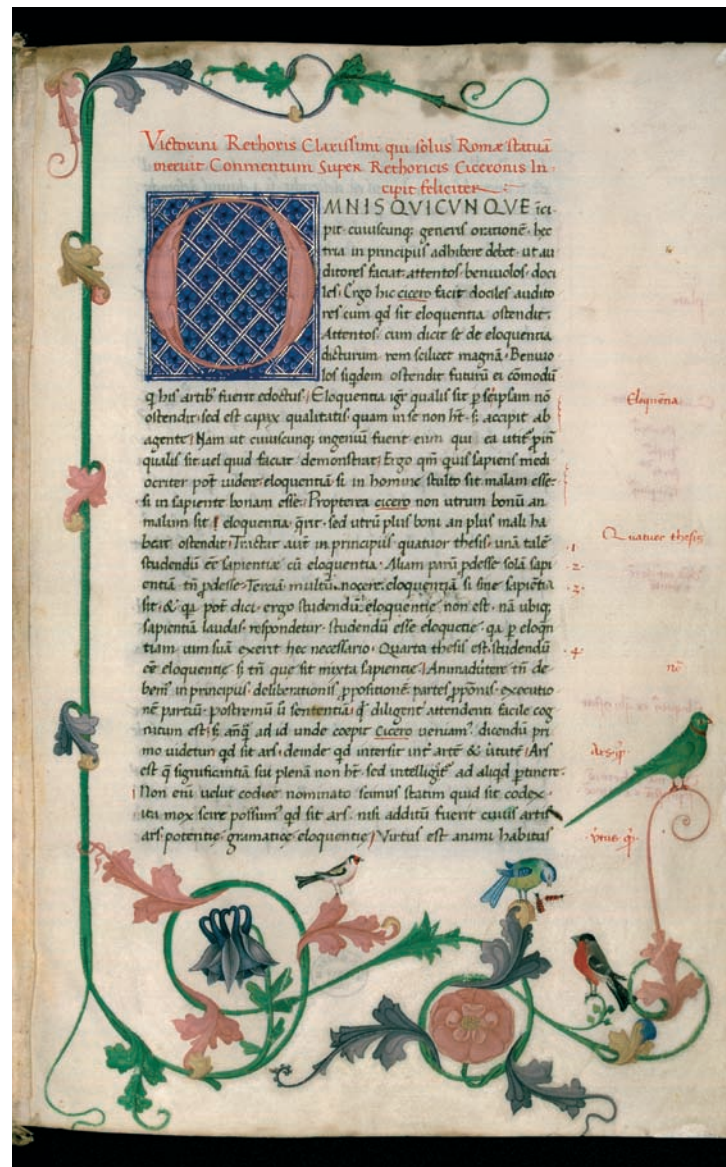 Victorini Rethoris Clarissimi qui solus Romæ statuā
meruit Conmentum Super Rethoricis Ciceronis In-
cipit feliciter
OMNIS QVICVNQVE īci
pit cuiuscunq; generis orationē hec
tria in principiis adhibere debet ut au
ditores faciat attentos beniuolos doci
les; Ergo hic cicero facit dociles audito
res cum qd sit eloquentia ostendit.
Attentos cum dicit se de eloquentia
dicturum rem scilicet magnā. Beniuo
los siqdem ostendit futurū ei cōmodū
q his artib fuerit edoctus. Eloquentia igr qualis sit p seipsam nō
ostendit sed est capax qualitatis quam in se non ht. s; accipit ab
agente. Nam ut cuiuscunq; ingeniū fuerit eum qui ea
qualis sit uel quid faciat demonstrat. Ergo qm quis sapiens medi
ocriter pōt uidere eloquentiā si in homine stulto sit malam esse.
si in sapiente bonam esse. Propterea cicero non utrum bonū an
malum sit eloquentia qrit sed utrū plus boni an plus mali ha
beat ostendit. Tractat aut in principiis quatuor thesis. unā talē
studendū eē sapientiæ cū eloquentia. Aliam parū pdesse solā sapi
entiā tn pdesse. Terciā multū nocere eloquentiā si sine sapiētia
sit. & qa pōt dici ergo studendū eloquentie non est. nā ubiq;
sapientiā laudas. respondetur studendū esse eloquētie qa p eloqn
tiam uim suā exerit hec necessario. Quarta thesis est studendū
eē eloquentie s; tn que sit mixta sapientie. Animaduertere tn de
bem in principiis deliberationis ppositionē partes pponis executio
nē partiū postremū sententiā. qd diligent attendenti facile cog
nitum est. s; anq ad id unde coepit Cicero ueniam dicendū pri
mo uidetur qd sit ars. deinde qd intersit int artē & uirtutē. Ars
est q significantiā sui plenā non ht. sed intelligit ad aliqd ptinere.
Non eni uelut codice nominato scimus statim quid sit codex
ita mox scire possum qd sit ars. nisi additū fuerit cuius artis
ars potentie gramatice eloquentie. Virtus est animi habitus
Eloquētia
Quatuor thesis
.1.
.2.
.3.
.4.
Ars